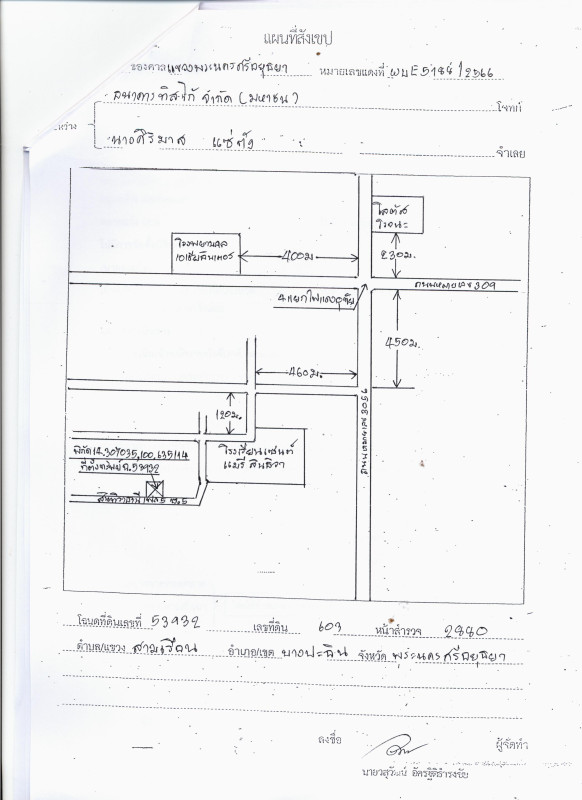 แผนที่สังเขป
ของศาลแขวงพระนครศรีอยุธยา หมายเลขแดงที่ ผบE5184/2566
ธนาคารทิสโก้ จำกัด (มหาชน) โจทก์
หว่าง
นางศิริมาส แซ่ตั้ง จำเลย
โลตัส
โรจนะ
โรงพยาบาล
เอเชียอินเตอร์
400ม.
230ม.
ถนนหมายเลข 309
4แยกไฟแดงอุทัย
450ม.
460ม.
120ม.
ถนนหมายเลข 3059
โรงเรียนเซนต์
แมรี่
พิกัด 14.307035,100.635114
ที่ตั้งทรัพย์ ฉ.53932
โฉนดที่ดินเลขที่ 53932 เลขที่ดิน 603 หน้าสำรวจ 2880
ตำบล/แขวง สามเรือน อำเภอ/เขต บางปะอิน จังหวัด พระนครศรีอยุธยา
ลงชื่อ ผู้จัดทำ
นายวสุวัฒน์ อัครฐิติธำรงชัย